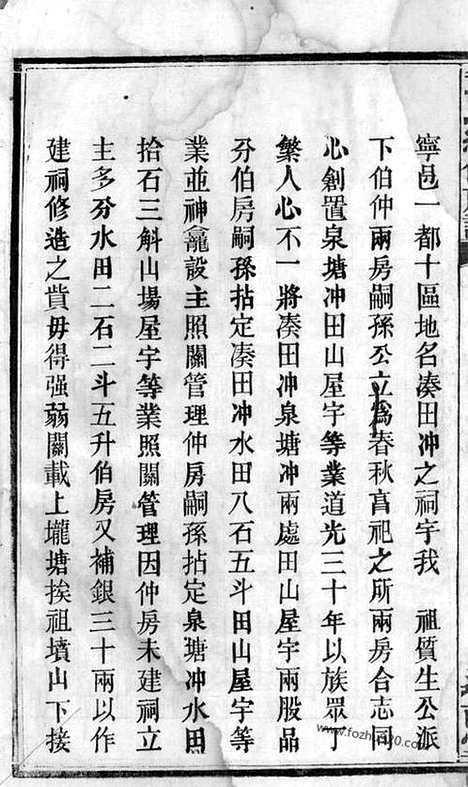 寧邑一都十區地名湊田冲之祠宇我 祖質生公派
下伯仲兩房嗣孫公立為春秋亯祀之所兩房合志同
心創置泉塘冲田山屋宇等業道光三十年以族眾丁
繁人心不一將湊田冲泉塘冲兩處田山屋宇兩股品
分伯房嗣孫拈定湊田冲水田八石五斗田山屋宇等
業並神龕設主照關管理仲房嗣孫拈定泉塘冲水田
拾石三斛山場屋宇等業照關管理因仲房未建祠立
主多分水田二石二斗五升伯房又補銀三十兩以作
建祠修造之貲毋得强弱關載上壠塘挨祖墳山下接
www.fozhu920.com